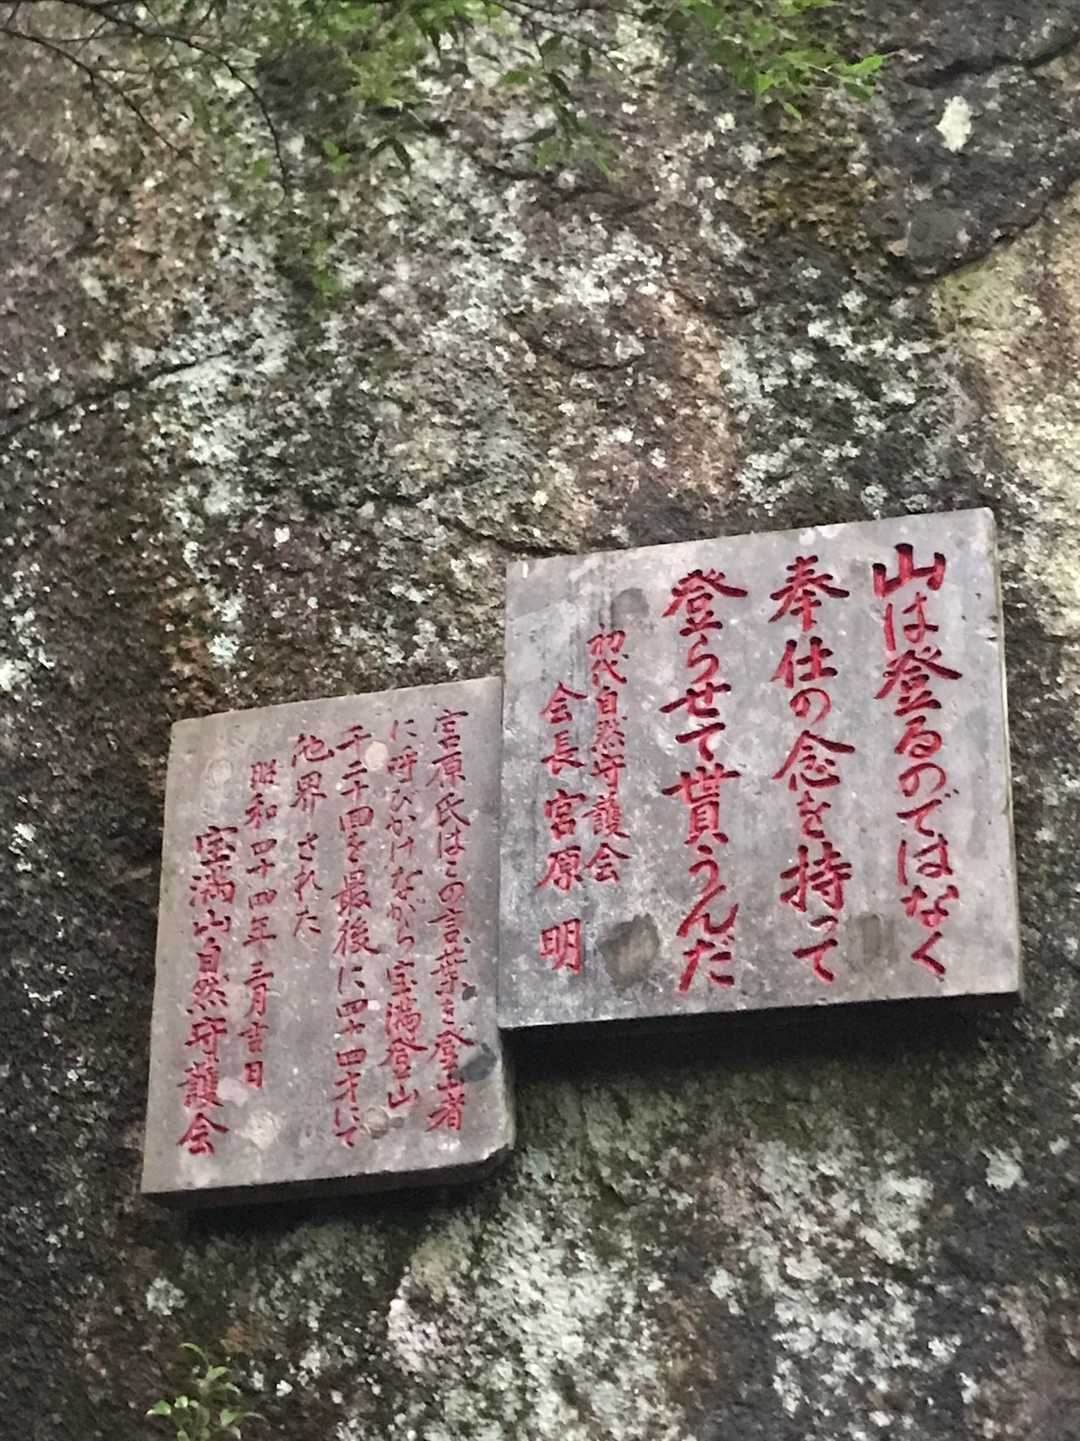 山は登るのではなく
奉仕の念を持って
登らせて貰うんだ
初代自然守護会
会長宮原明
宮原氏はこの言葉を登山者
に呼びかけながら宝満登山
千二十四を最後に四十四才にて
他界された
昭和四十四年三月吉日
宝満山自然守護会